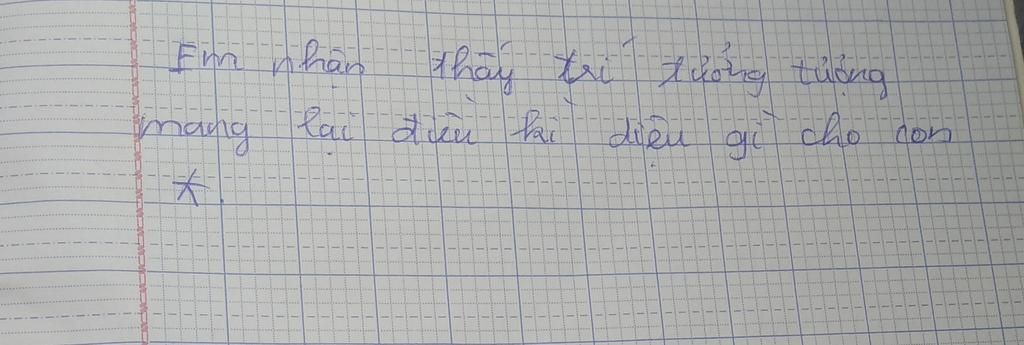 Em nhận thấy trí tưởng tượng
mang lại điều kì diệu gì cho con
*.